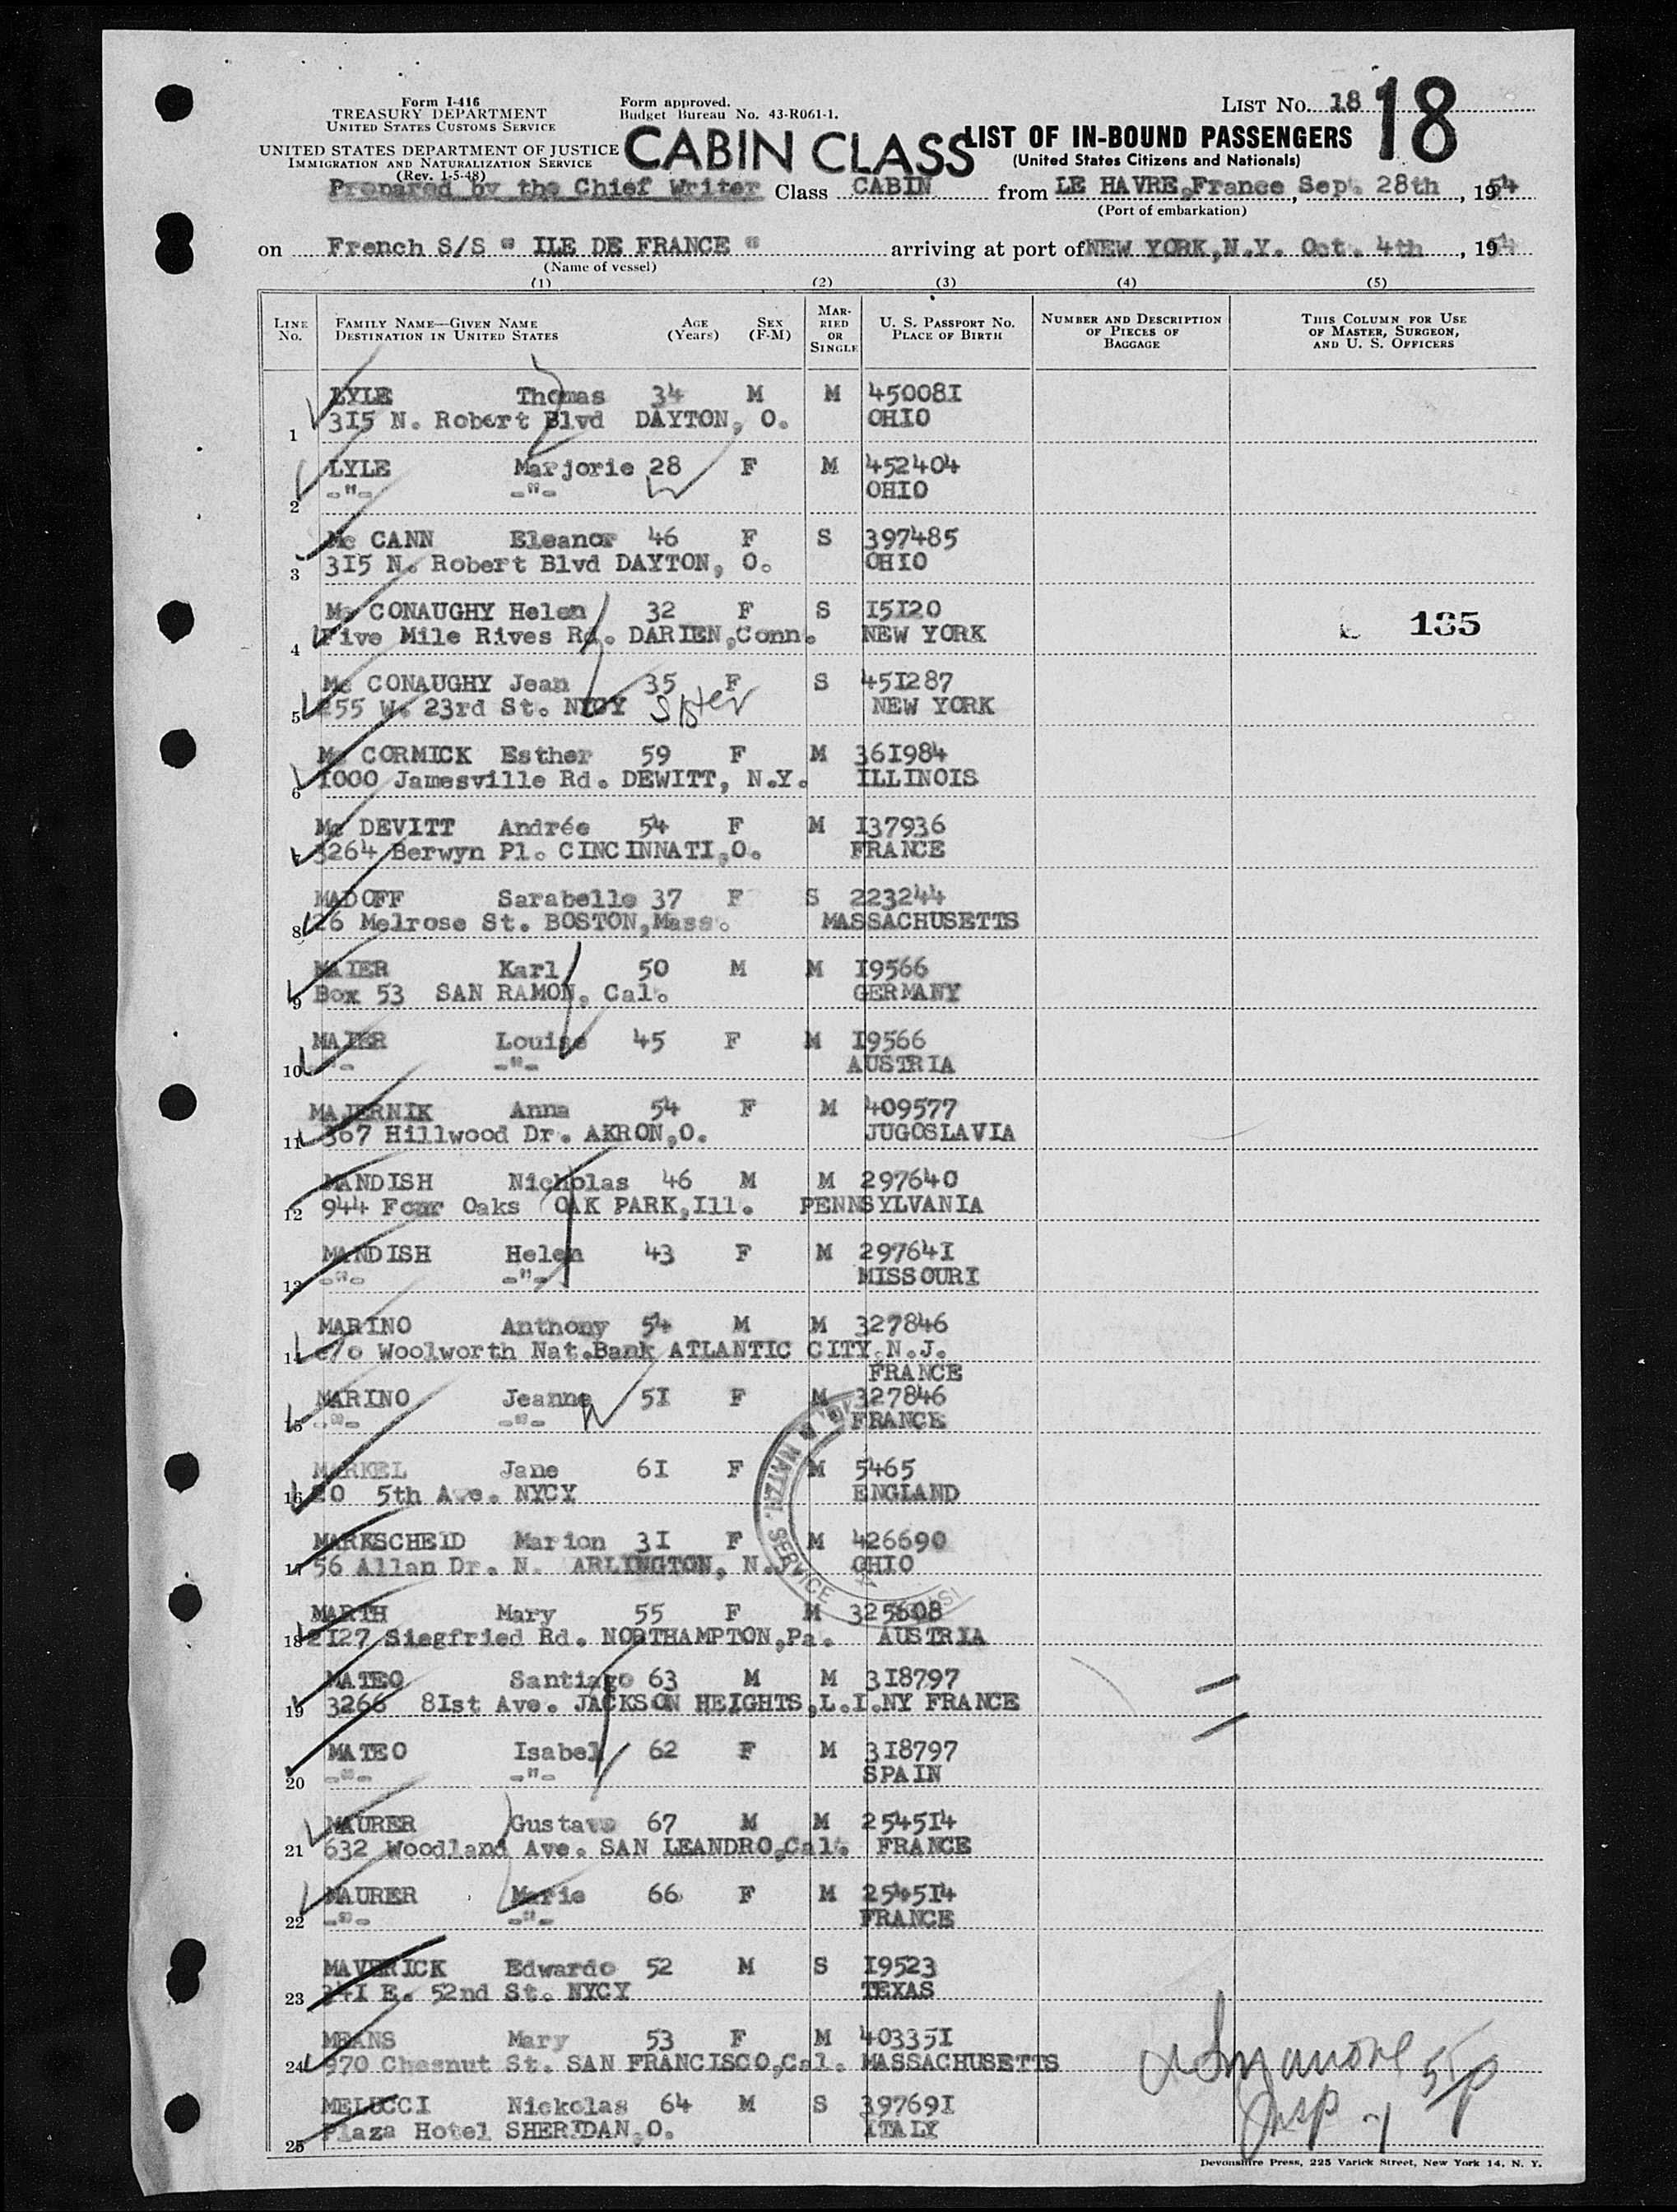 Form I-416
TREASURY DEPARTMENT
UNITED STATES CUSTOMS SERVICE
UNITED STATES DEPARTMENT OF JUSTICE
IMMIGRATION AND NATURALIZATION SERVICE
(Rev. 1-5-48)
Form approved.
Budget Bureau No. 43-R061-1.
LIST NO. 18
18
CABIN CLASS
LIST OF IN-BOUND PASSENGERS
(United States Citizens and Nationals)
Prepared by the Chief Writer Class CABIN from LE HAVRE,France, Sept. 28th, 1954
(Port of embarkation)
on French S/S " ILE DE FRANCE " arriving at port of NEW YORK,N.Y. Oct. 4th, 1954
(Name of vessel)
(1) (2) (3) (4) (5)
LINE NO. FAMILY NAME—GIVEN NAME DESTINATION IN UNITED STATES AGE (Years) SEX (F-M) MARRIED OR SINGLE U. S. PASSPORT NO. PLACE OF BIRTH NUMBER AND DESCRIPTION OF PIECES OF BAGGAGE THIS COLUMN FOR USE OF MASTER, SURGEON, AND U. S. OFFICERS
LYLE Thomas 34 M M 450081
1 315 N. Robert Blvd DAYTON, O. OHIO
LYLE Marjorie 28 F M 452404
2 -"- -"- OHIO
Mc CANN Eleanor 46 F S 397485
3 315 N. Robert Blvd DAYTON, O. OHIO
Mc CONAUGHY Helen 32 F S 15120
4 Five Mile Rives Rd. DARIEN,Conn. NEW YORK 135
Mc CONAUGHY Jean 35 F S 451287
5 255 W. 23rd St. NYCY Sister NEW YORK
Mc CORMICK Esther 59 F M 361984
6 1000 Jamesville Rd. DEWITT, N.Y. ILLINOIS
Mc DEVITT Andrée 54 F M 137936
7 3264 Berwyn Pl. CINCINNATI,O. FRANCE
MADOFF Sarabelle 37 F S 223244
8 26 Melrose St. BOSTON,Mass. MASSACHUSETTS
MAIER Karl 50 M M 19566
9 Box 53 SAN RAMON, Cal. GERMANY
MAIER Louise 45 F M 19566
10 -"- -"- AUSTRIA
MAJERNIK Anna 54 F M 409577
11 367 Hillwood Dr. AKRON,O. JUGOSLAVIA
MANDISH Nicholas 46 M M 297640
12 944 Four Oaks OAK PARK,Ill. PENNSYLVANIA
MANDISH Helen 43 F M 297641
13 -"- -"- MISSOURI
MARINO Anthony 54 M M 327846
14 c/o Woolworth Nat.Bank ATLANTIC CITY,N.J.
FRANCE
MARINO Jeanne 51 F M 327846
15 -"- -"- FRANCE
MARKEL Jane 61 F M 5465
16 20 5th Ave. NYCY ENGLAND
MARKSCHEID Marion 31 F M 426690
17 56 Allan Dr. N. ARLINGTON, N.J. OHIO
MARTH Mary 55 F M 325608
18 2127 Siegfried Rd. NORTHAMPTON,Pa. AUSTRIA
& NATZN. SERVICE
MATEO Santiago 63 M M 318797
19 3266 81st Ave. JACKSON HEIGHTS,L.I.NY FRANCE
MATEO Isabel 62 F M 318797
20 -"- -"- SPAIN
MAURER Gustave 67 M M 254514
21 632 Woodland Ave. SAN LEANDRO,Cal. FRANCE
MAURER Marie 66 F M 254514
22 -"- -"- FRANCE
MAVERICK Edwardo 52 M S 19523
23 241 E. 52nd St. NYCY TEXAS
MEANS Mary 53 F M 403351
24 970 Chesnut St. SAN FRANCISCO,Cal. MASSACHUSETTS
MELUCCI Nickolas 64 M S 397691
25 Plaza Hotel SHERIDAN,O. ITALY
Insp
Devonshire Press, 225 Varick Street, New York 14, N. Y.